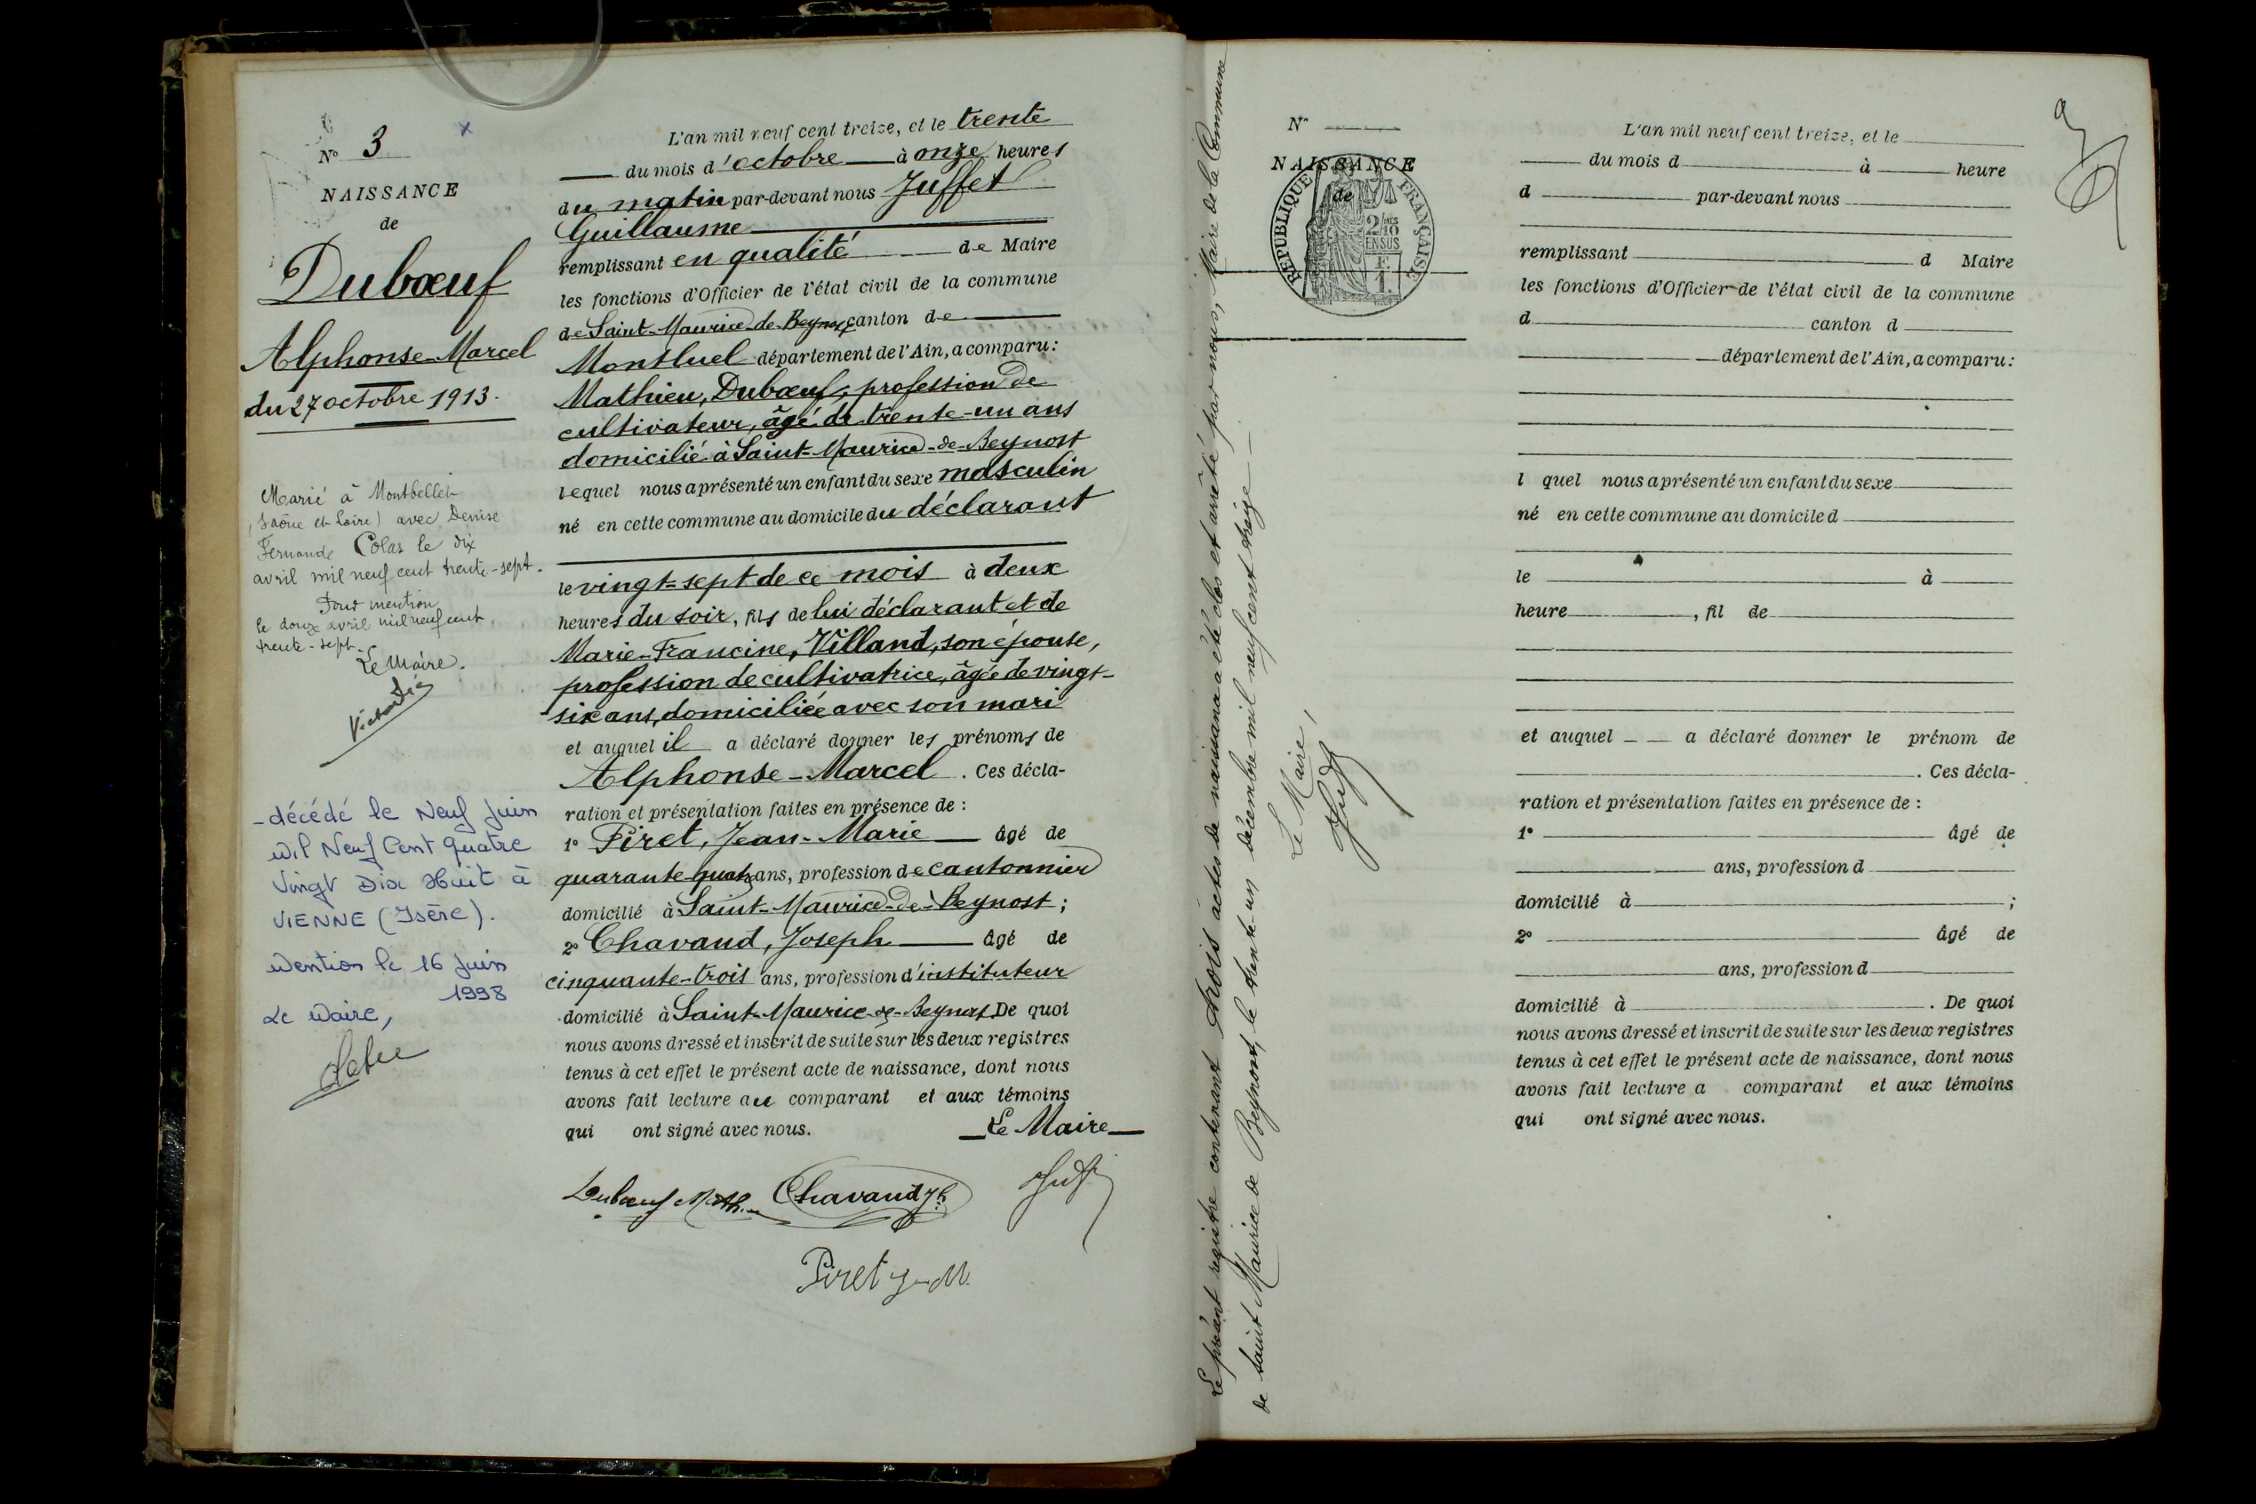 Nº 3
NAISSANCE
de
Dubœuf
Alphonse-Marcel
du 27 octobre 1913.
Marié à Montbellet
(Saône et Loire) avec Denise
Fernande Colas le dix
avril mil neuf cent trente-sept.
Dont mention
le douze avril mil neuf cent
trente-sept.
Le Maire.
- décédé le Neuf Juin
Mil Neuf Cent Quatre
Vingt Dix Huit à
VIENNE (Isère).
Mention le 16 Juin
1998
Le Maire,
L'an mil neuf cent treize, et le trente
du mois d'octobre à onze heures
du matin par-devant nous Juffet
Guillaume
remplissant en qualité de Maire
les fonctions d'Officier de l'état civil de la commune
de Saint-Maurice-de-Beynost canton de
Montluel département de l'Ain, a comparu:
Mathieu, Dubœuf, profession de
cultivateur, âgé de trente-un ans
domicilié à Saint-Maurice-de-Beynost
lequel nous a présenté un enfant du sexe masculin
né en cette commune au domicile du déclarant
le vingt-sept de ce mois à deux
heures du soir, fils de lui déclarant et de
Marie-Francine, Villand, son épouse,
profession de cultivatrice, âgée de vingt-
six ans, domiciliée avec son mari
et auquel il a déclaré donner les prénoms de
Alphonse-Marcel. Ces décla-
ration et présentation faites en présence de:
1º Piret, Jean-Marie âgé de
quarante-quatre ans, profession de cantonnier
domicilié à Saint-Maurice-de-Beynost;
2º Chavand, Joseph âgé de
cinquante-trois ans, profession d'instituteur
domicilié à Saint-Maurice-de-Beynost De quoi
nous avons dressé et inscrit de suite sur les deux registres
tenus à cet effet le présent acte de naissance, dont nous
avons fait lecture au comparant et aux témoins
qui ont signé avec nous.
Le Maire
Dubœuf Math.
Chavand Jh
Piret J-M.
Le présent registre contenant trois actes de naissance a été clos et arrêté par nous, Maire de la Commune
de Saint Maurice de Beynost, le trente un décembre mil neuf cent treize
Le Maire,
Nº
NAISSANCE
de
RÉPUBLIQUE FRANÇAISE
2/10
EN SUS
L'an mil neuf cent treize, et le
du mois d à heure
d par-devant nous
remplissant d Maire
les fonctions d'Officier de l'état civil de la commune
d canton d
département de l'Ain, a comparu:
l quel nous a présenté un enfant du sexe
né en cette commune au domicile d
le à
heure , fil de
et auquel a déclaré donner le prénom de
. Ces décla-
ration et présentation faites en présence de:
1º âgé de
ans, profession d
domicilié à ;
2º âgé de
ans, profession d
domicilié à . De quoi
nous avons dressé et inscrit de suite sur les deux registres
tenus à cet effet le présent acte de naissance, dont nous
avons fait lecture a comparant et aux témoins
qui ont signé avec nous.